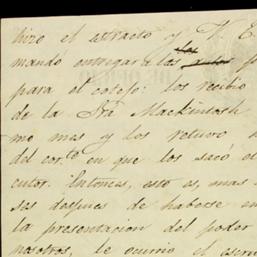 hizo el stracto y V. E
mandó entregar a las los
para el cotejo: los recibio
de la Sra Mackintosh
mo mas y los retuvo
del cor.te en que los sacó
cutor. Entonces, esto es, mas
ses despues de haberse en
la presentacion del poder
nosotros, le ocurrio el escru